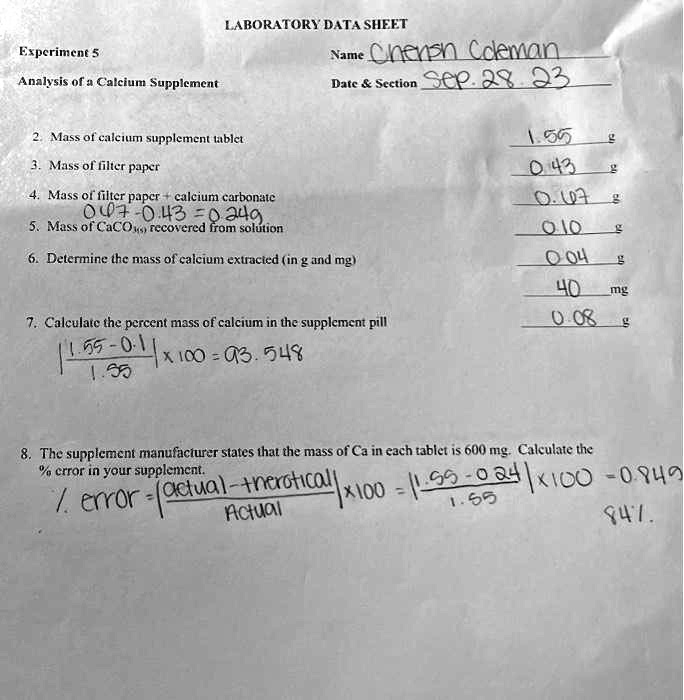 LABORATORY DATA SHEET
Experiment 5
Name Chensn Coleman
Analysis of a Calcium Supplement
Date & Section Sep. 28. 23
2. Mass of calcium supplement tablet 1.55 g
3. Mass of filter paper 0.43 g
4. Mass of filter paper + calcium carbonate 0.67 g
0.67-0.43 = 0.24g
5. Mass of CaCO3(s) recovered from solution 0.10 g
6. Determine the mass of calcium extracted (in g and mg) 0.04 g
40 mg
7. Calculate the percent mass of calcium in the supplement pill 0.08 g
|1.55-0.1 / 1.55| x 100 = 93.548
8. The supplement manufacturer states that the mass of Ca in each tablet is 600 mg. Calculate the
% error in your supplement.
% error = |actual-therotical / Actual| x100 = |1.55-0.24 / 1.55| x100 = 0.849
84%.